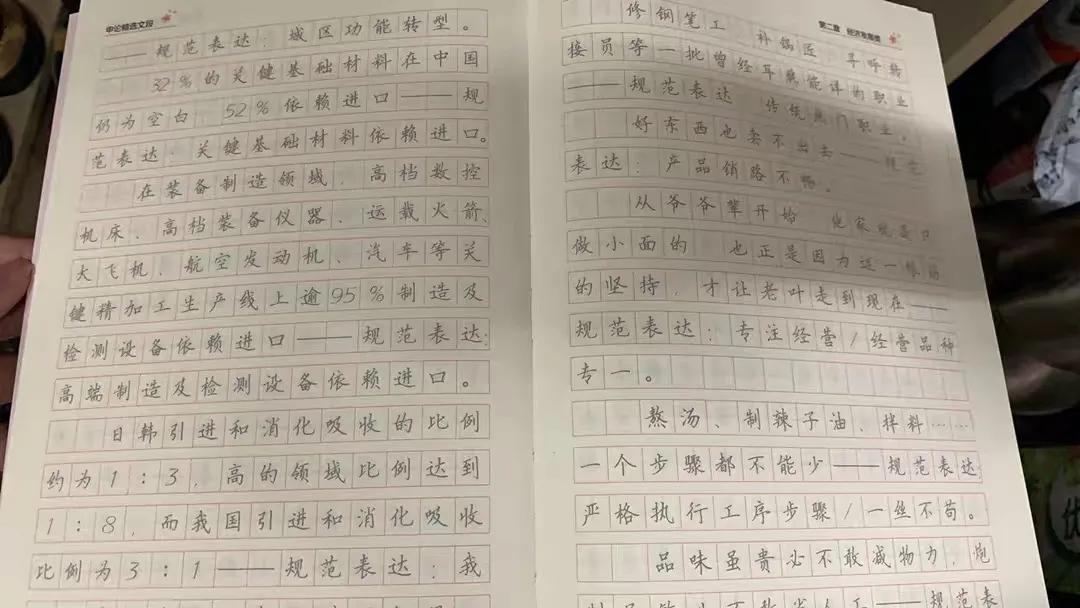 申论精选文段
——规范表达：城区功能转型。
32%的关键基础材料在中国
仍为空白，52%依赖进口——规
范表达：关键基础材料依赖进口。
在装备制造领域，高档数控
机床、高档装备仪器、运载火箭、
大飞机、航空发动机、汽车等关
键精加工生产线上逾95%制造及
检测设备依赖进口——规范表达：
高端制造及检测设备依赖进口。
日韩引进和消化吸收的比例
约为1：3，高的领域比例达到
1：8，而我国引进和消化吸收
比例为3：1——规范表达：我
第二章 经济发展类
修钢笔工 补锅匠 寻呼转
接员等一批曾经耳熟能详的职业
——规范表达 传统热门职业。
好东西也卖不出去——规范
表达：产品销路不畅。
从爷爷辈开始 他家就是只
做小面的 也正是因为这一
的坚持，才让老叶走到现在——
规范表达：专注经营/经营品种
专一。
熬汤、制辣子油、拌料……
一个步骤都不能少——规范表达：
严格执行工序步骤/一丝不苟。
品味虽贵必不敢减物力，炮